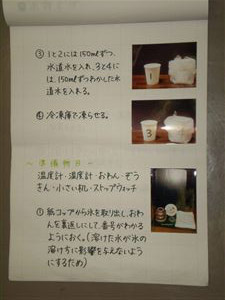 ③ 1と2には150mlずつ、
水道水を入れ、3と4に
は、150mlずつわかした水
道水を入れる。
1
④ 冷凍庫で凍らせる。
3
～準備物日～
温度計・湿度計・おわん・ぞう
きん・小さい机・ストップウォッチ
① 紙コップから氷を取り出し、おわ
んを裏返しにして、番号がわかる
ようにおく。(溶けた水が氷の
溶け方に影響を与えないよう
にするため)